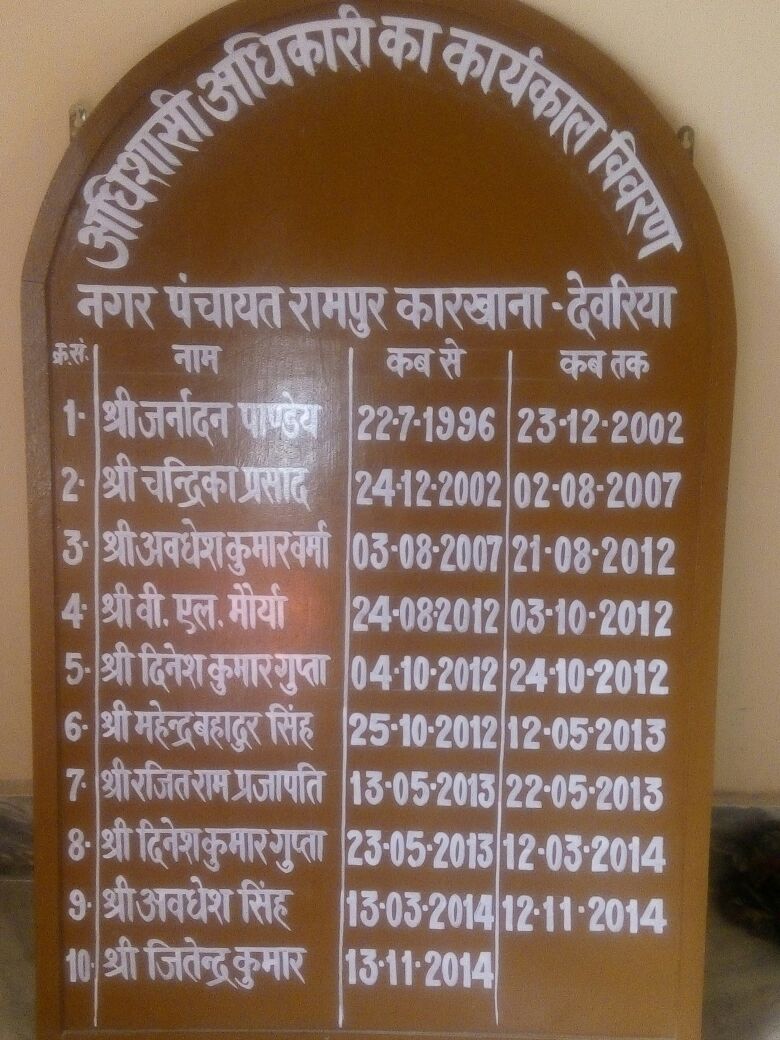 अधिशासी अधिकारी का कार्यकाल विवरण
नगर पंचायत रामपुर कारखाना - देवरिया
क्र.सं. नाम कब से कब तक
1- श्री जर्नादन पाण्डेय 22-7-1996 23-12-2002
2- श्री चन्द्रिका प्रसाद 24-12-2002 02-08-2007
3- श्री अवधेश कुमार वर्मा 03-08-2007 21-08-2012
4- श्री वी. एल. मौर्या 24-082012 03-10-2012
5- श्री दिनेश कुमार गुप्ता 04-10-2012 24-10-2012
6- श्री महेन्द्र बहादुर सिंह 25-10-2012 12-05-2013
7- श्री रजित राम प्रजापति 13-05-2013 22-05-2013
8- श्री दिनेश कुमार गुप्ता 23-05-2013 12-03-2014
9- श्री अवधेश सिंह 13-03-2014 12-11-2014
10- श्री जितेन्द्र कुमार 13-11-2014